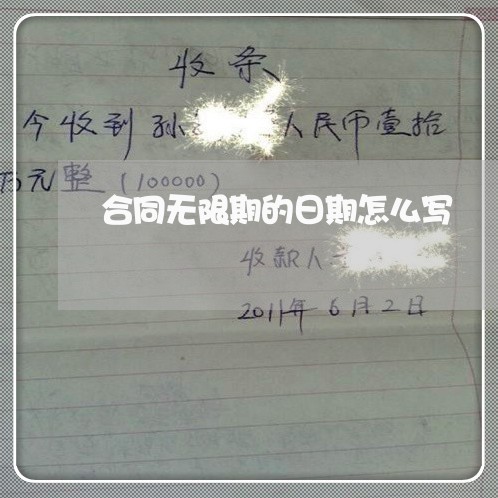 收条
今收到孙 人民币壹拾
万元整（100000）
合同无限期的日期怎么写
收款人
2011年6月2日